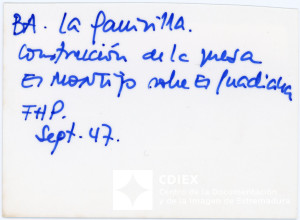 BA. La Garrovilla.
Construcción de la presa
El MONTIJO sobre El Guadiana
FHP.
Sept. 47.
CDIEX